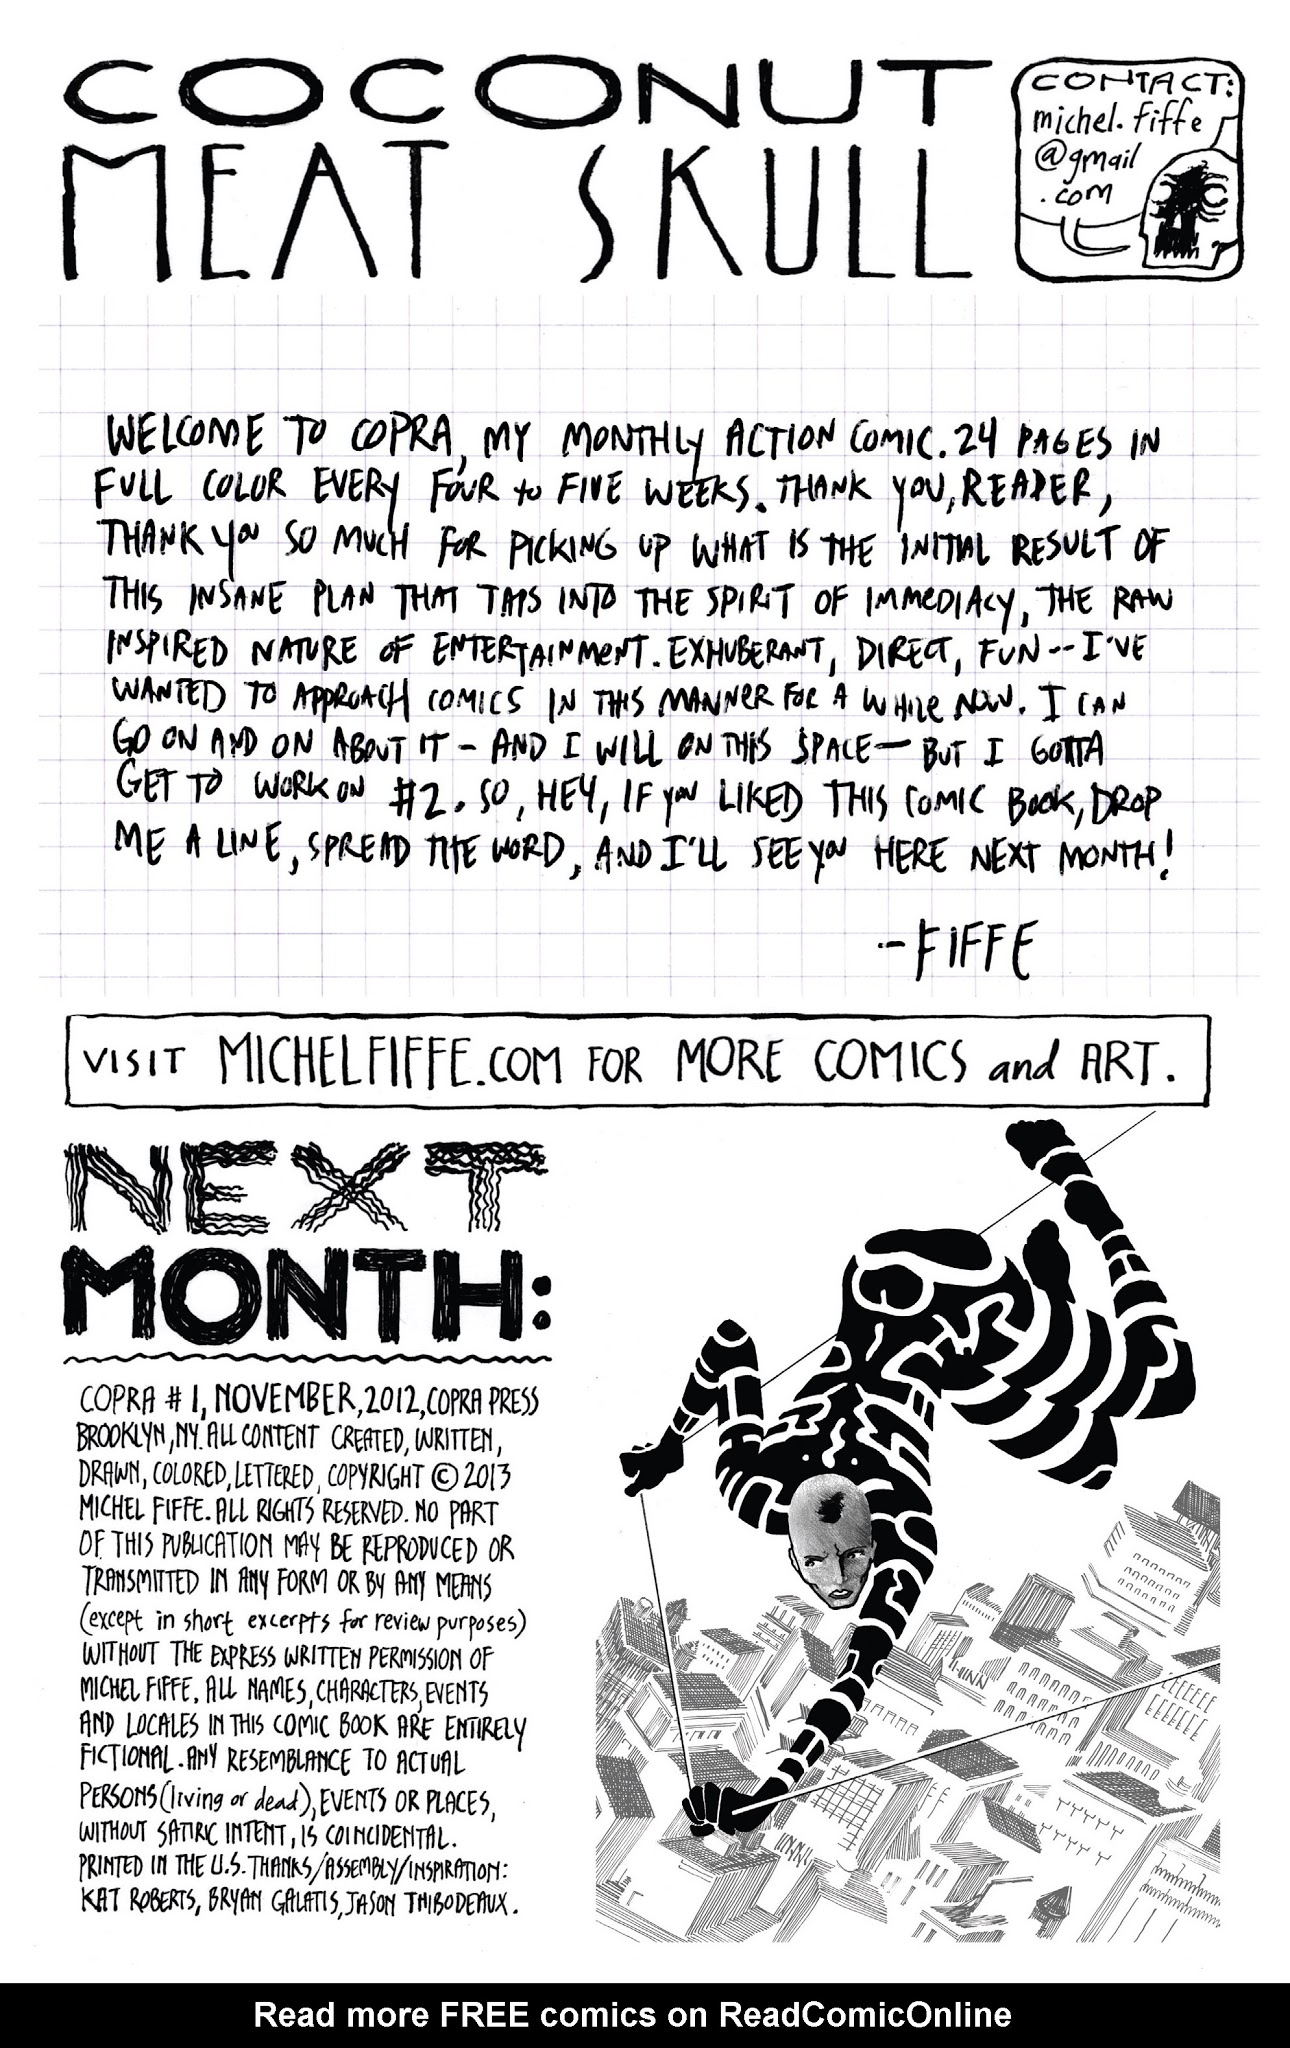 COCONUT
MEAT SKULL
CONTACT:
michel.fiffe
@gmail
.com
WELCOME TO COPRA, MY MONTHLY ACTION COMIC. 24 PAGES IN
FULL COLOR EVERY FOUR to FIVE WEEKS. THANK YOU, READER,
THANK YOU SO MUCH FOR PICKING UP WHAT IS THE INITIAL RESULT OF
THIS INSANE PLAN THAT TAPS INTO THE SPIRIT OF IMMEDIACY, THE RAW
INSPIRED NATURE OF ENTERTAINMENT. EXHUBERANT, DIRECT, FUN -- I'VE
WANTED TO APPROACH COMICS IN THIS MANNER FOR A WHILE NOW. I CAN
GO ON AND ON ABOUT IT - AND I WILL ON THIS SPACE - BUT I GOTTA
GET TO WORK ON #2. SO, HEY, IF YOU LIKED THIS COMIC BOOK, DROP
ME A LINE, SPREAD THE WORD, AND I'LL SEE YOU HERE NEXT MONTH!
-- FIFFE
VISIT MICHELFIFFE.COM FOR MORE COMICS and ART.
NEXT
MONTH:
COPRA #1, NOVEMBER, 2012, COPRA PRESS
BROOKLYN, NY. ALL CONTENT CREATED, WRITTEN,
DRAWN, COLORED, LETTERED, COPYRIGHT © 2013
MICHEL FIFFE. ALL RIGHTS RESERVED. NO PART
OF THIS PUBLICATION MAY BE REPRODUCED OR
TRANSMITTED IN ANY FORM OR BY ANY MEANS
(except in short excerpts for review purposes)
WITHOUT THE EXPRESS WRITTEN PERMISSION OF
MICHEL FIFFE. ALL NAMES, CHARACTERS, EVENTS
AND LOCALES IN THIS COMIC BOOK ARE ENTIRELY
FICTIONAL. ANY RESEMBLANCE TO ACTUAL
PERSONS (living or dead), EVENTS OR PLACES,
WITHOUT SATIRIC INTENT, IS COINCIDENTAL.
PRINTED IN THE U.S. THANKS/ASSEMBLY/INSPIRATION:
KAT ROBERTS, BRYAN GALATIS, JASON THIBODEAUX.
Read more FREE comics on ReadComicOnline